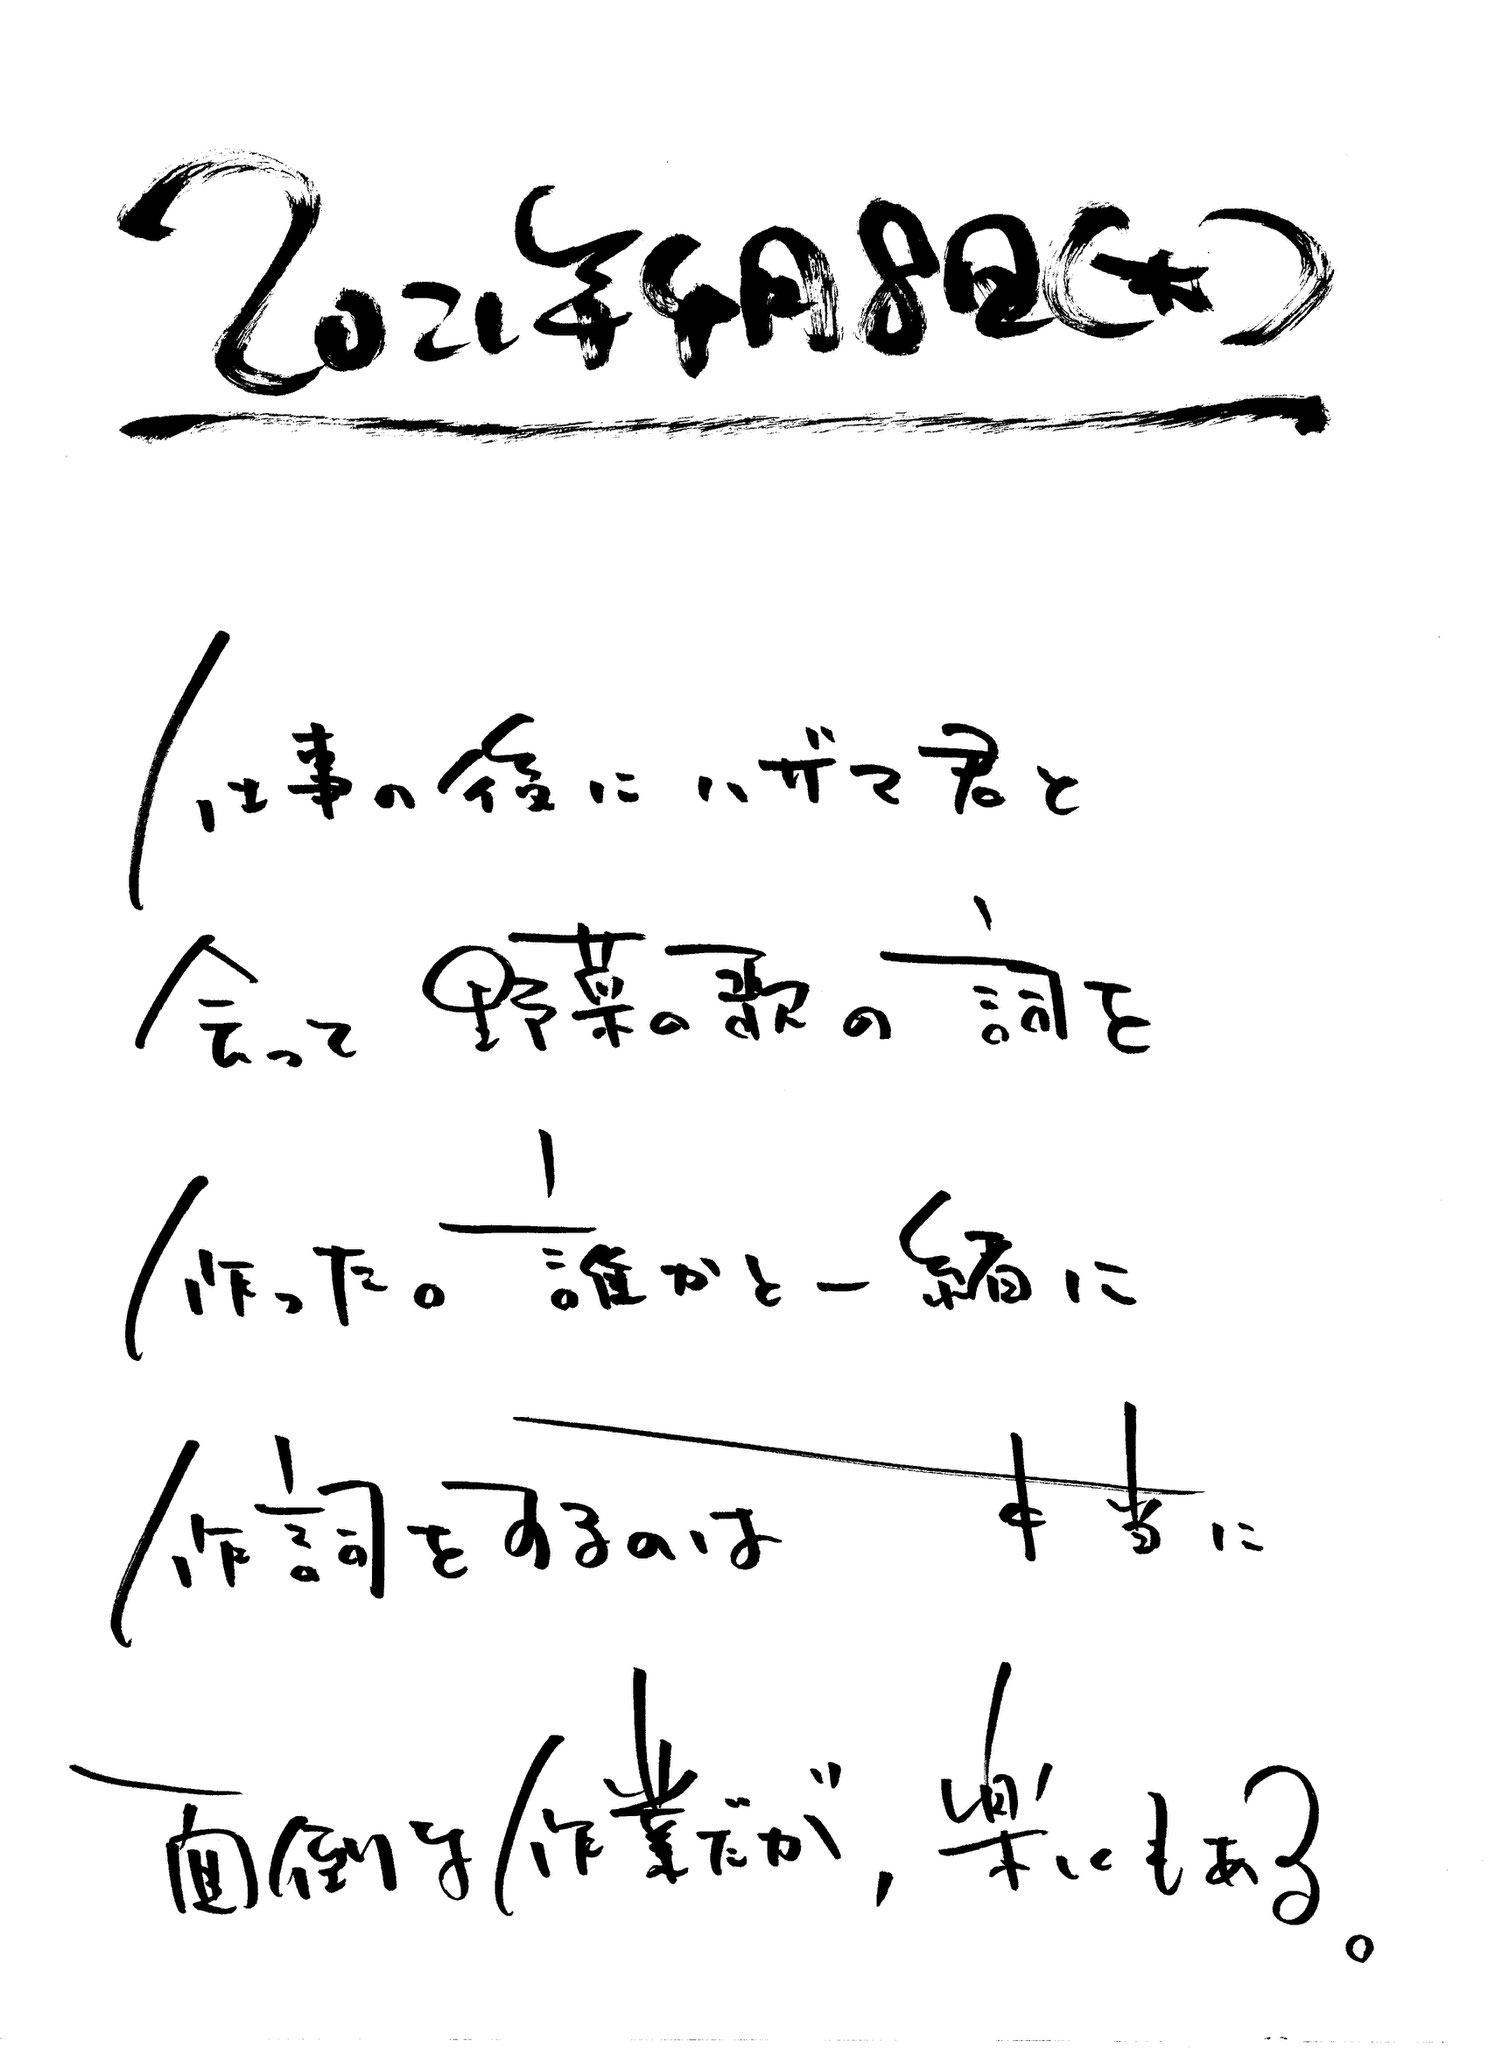 2021年4月8日(木)
仕事の後にハザマ君と
会って野菜の歌の詞を
作った。誰かと一緒に
作詞をするのは本当に
面倒な作業だが,楽しくもある。